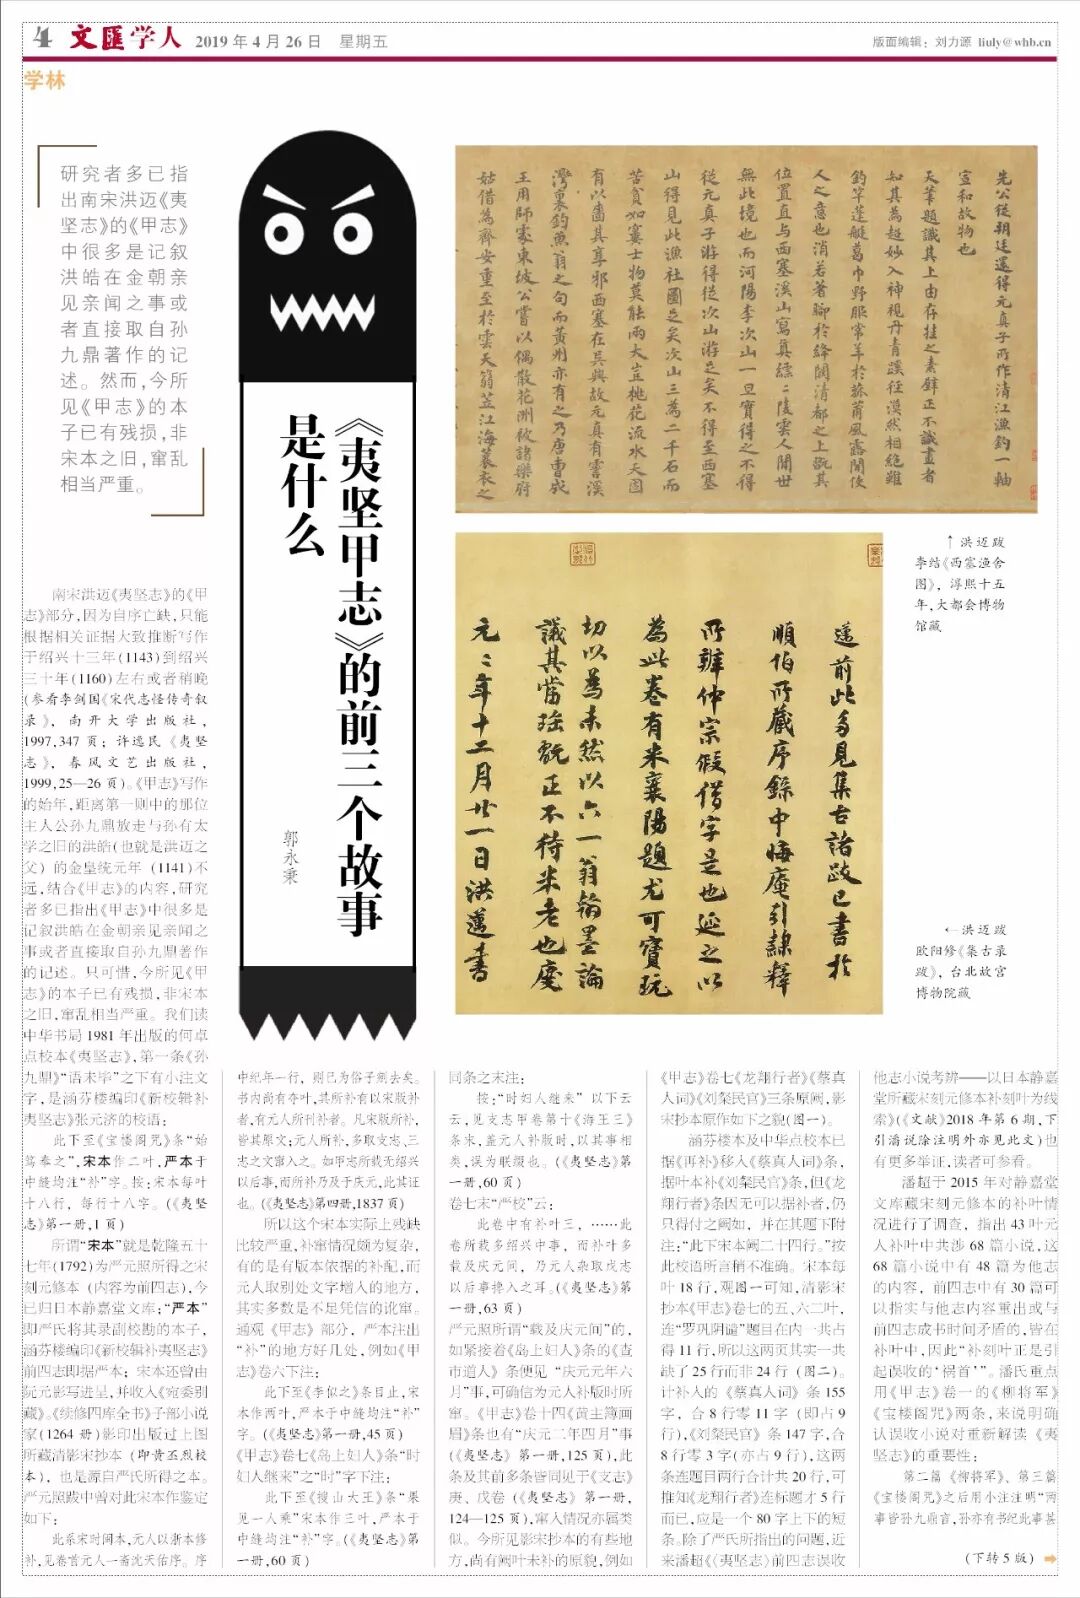 4 文匯学人 2019 年 4 月 26 日 星期五
版面编辑：刘力源 liuly@whb.cn
学林
研究者多已指
出南宋洪迈《夷
坚志》的《甲志》
中很多是记叙
洪皓在金朝亲
见亲闻之事或
者直接取自孙
九鼎著作的记
述。然而，今所
见《甲志》的本
子已有残损，非
宋本之旧，窜乱
相当严重。
《夷坚甲志》的前三个故事
是什么
郭永秉
先公從朔廷還得元真子所作清江漁釣一軸
宣和故物也
天筆題識其上由存挂之素壁正不識畫者
知其為超妙入神視丹青蹊徑漠然相絕雖
釣竿蓬艇葛巾野服常羊於菰葦風露間使
人之意也消若著腳於絳闕清都之上甑其
位置直与西塞溪山寫真縹二陵雲人間世
無此境也而河陽李次山一旦實得之不得
從元真子游得從次山游足矣不得至西塞
山得見此漁社圖足矣次山三為二千石而
苦貧如寠士物莫能兩大豈桃花流水天固
有以嗇其享邪西塞在吳興故元真有霅溪
灣裏釣魚翁之句而黃州亦有之乃唐曹成
王用師處東坡公嘗以偶散花洲被諸樂府
姑借為齊安重至於雲天篛笠江海蓑衣之
邁前此多見集古諸跋已書於
順伯所藏序錄中晦庵引隸釋
所辨仲宗假借字是也延之以
為此卷有米襄陽題尤可寶玩
切以為未然以六一翁翰墨論
議其當瑤甑正不待米老也慶
元二年十二月廿一日洪邁書
↑ 洪迈跋
李结《西塞渔舍
图》，淳熙十五
年，大都会博物
馆藏
←洪迈跋
欧阳修《集古录
跋》，台北故宫
博物院藏
南宋洪迈《夷坚志》的《甲
志》部分，因为自序亡缺，只能
根据相关证据大致推断写作
于绍兴十三年(1143)到绍兴
三十年(1160)左右或者稍晚
(参看李剑国《宋代志怪传奇叙
录》，南开大学出版社，
1997,347 页；许逸民《夷坚
志》，春风文艺出版社，
1999,25—26 页)。《甲志》写作
的始年，距离第一则中的那位
主人公孙九鼎放走与孙有太
学之旧的洪皓(也就是洪迈之
父）的金皇统元年（1141)不
远，结合《甲志》的内容，研究
者多已指出《甲志》中很多是
记叙洪皓在金朝亲见亲闻之
事或者直接取自孙九鼎著作
的记述。只可惜，今所见《甲
志》的本子已有残损，非宋本
之旧，窜乱相当严重。我们读
中华书局 1981 年出版的何卓
点校本《夷坚志》，第一条《孙
九鼎》“语未毕”之下有小注文
字，是涵芬楼编印《新校辑补
夷坚志》张元济的校语：
此下至《宝楼阁咒》条“始
笃奉之”，宋本作二叶，严本于
中缝均注“补”字。按：宋本每叶
十八行，每行十八字。(《夷坚
志》第一册,1 页)
所谓“宋本”就是乾隆五十
七年(1792)为严元照所得之宋
刻元修本（内容为前四志），今
已归日本静嘉堂文库；“严本”
即严氏将其录副校勘的本子，
涵芬楼编印《新校辑补夷坚志》
前四志即据严本；宋本还曾由
阮元影写进呈，并收入《宛委别
藏》。《续修四库全书》子部小说
家(1264 册)影印出版过上图
所藏清影宋抄本（即黄丕烈校
本），也是源自严氏所得之本。
严元照跋中曾对此宋本作鉴定
如下：
此系宋时闽本，元人以浙本修
补，见卷首元人一斋沈天佑序。序
中纪年一行，则已为俗子剜去矣。
书内尚有夺叶，其所补有以宋版补
者，有元人所刊补者。凡宋版所补，
皆其原文；元人所补，多取支志、三
志之文窜入之。如甲志所载无绍兴
以后事，而所补乃及于庆元，此其证
也。(《夷坚志》第四册,1837 页)
所以这个宋本实际上残缺
比较严重，补窜情况颇为复杂，
有的是有版本依据的补配，而
元人取别处文字增入的地方，
其实多数是不足凭信的讹窜。
通观《甲志》部分，严本注出
“补”的地方好几处，例如《甲
志》卷六下注：
此下至《李似之》条目止，宋
本作两叶，严本于中缝均注“补”
字。(《夷坚志》第一册,45 页)
《甲志》卷七《岛上妇人》条“时
妇人继来”之“时”字下注：
此下至《搜山大王》条“果
见一人乘”宋本作三叶，严本于
中缝均注“补”字。(《夷坚志》第
一册,60 页)
同条之末注：
按：“时妇人继来”以下云
云，见支志甲卷第十《海王三》
条末，盖元人补版时，以其事相
类，误为联缀也。(《夷坚志》第
一册,60 页)
卷七末“严校”云：
此卷中有补叶三，……此
卷所载多绍兴中事，而补叶多
载及庆元间，乃元人杂取戊志
以后事搀入之耳。(《夷坚志》第
一册,63 页)
严元照所谓“载及庆元间”的，
如紧接着《岛上妇人》条的《查
市道人》条便见“庆元元年六
月”事，可确信为元人补版时所
窜。《甲志》卷十四《黄主簿画
眉》条也有“庆元二年四月”事
(《夷坚志》第一册,125 页)，此
条及其前多条皆同见于《支志》
庚、戊卷（《夷坚志》第一册，
124—125 页)，窜入情况亦属类
似。今所见影宋抄本的有些地
方，尚有阙叶未补的原貌，例如
《甲志》卷七《龙翔行者》《蔡真
人词》《刘粲民官》三条原阙，影
宋抄本原作如下之貌(图一)。
涵芬楼本及中华点校本已
据《再补》移入《蔡真人词》条，
据叶本补《刘粲民官》条，但《龙
翔行者》条因无可以据补者，仍
只得付之阙如，并在其题下附
注：“此下宋本阙二十四行。”按
此校语所言稍不准确。宋本每
叶 18 行，观图一可知，清影宋
抄本《甲志》卷七的五、六二叶，
连“罗巩阴谴”题目在内一共占
得 11 行，所以这两页其实一共
缺了 25 行而非 24 行（图二）。
计补人的《蔡真人词》条 155
字，合 8 行零 11 字（即占 9
行)，《刘粲民官》条 147 字，合
8 行零 3 字(亦占 9 行)，这两
条连题目两行合计共 20 行，可
推知《龙翔行者》连标题才 5 行
而已，应是一个 80 字上下的短
条。除了严氏所指出的问题，近
来潘超《〈夷坚志〉前四志误收
他志小说考辨——以日本静嘉
堂所藏宋刻元修本补刻叶为线
索》(《文献》2018 年第 6 期，下
引潘说除注明外亦见此文)也
有更多举证，读者可参看。
潘超于 2015 年对静嘉堂
文库藏宋刻元修本的补叶情
况进行了调查，指出 43 叶元
人补叶中共涉 68 篇小说，这
68 篇小说中有 48 篇为他志
的内容，前四志中有 30 篇可
以指实与他志内容重出或与
前四志成书时间矛盾的，皆在
补叶中，因此“补刻叶正是引
起误收的‘祸首’”。潘氏重点
用《甲志》卷一的《柳将军》
《宝楼阁咒》两条，来说明确
认误收小说对重新解读《夷
坚志》的重要性：
第二篇《柳将军》、第三篇
《宝楼阁咒》之后用小注注明“两
事皆孙九鼎言，孙亦有书纪此事甚
(下转 5 版)